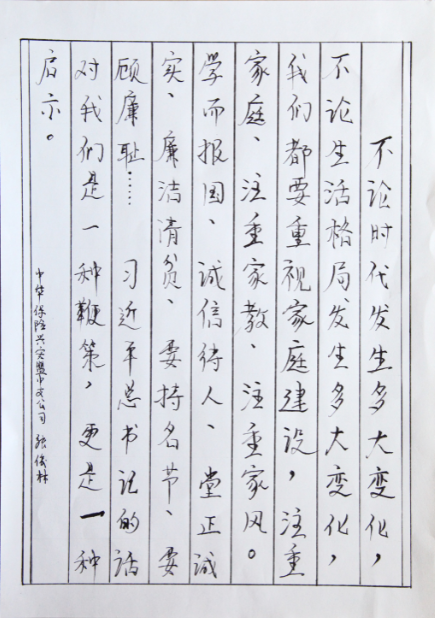 不论时代发生多大变化，
不论生活格局发生多大变化，
我们都要重视家庭建设，注重
家庭、注重家教、注重家风。
学而报国、诚信待人、堂正诚
实、廉洁清贫、要持名节、要
顾廉耻…… 习近平总书记的话
对我们是一种鞭策，更是一种
启示。
中华保险兴安盟中支公司 张俊林